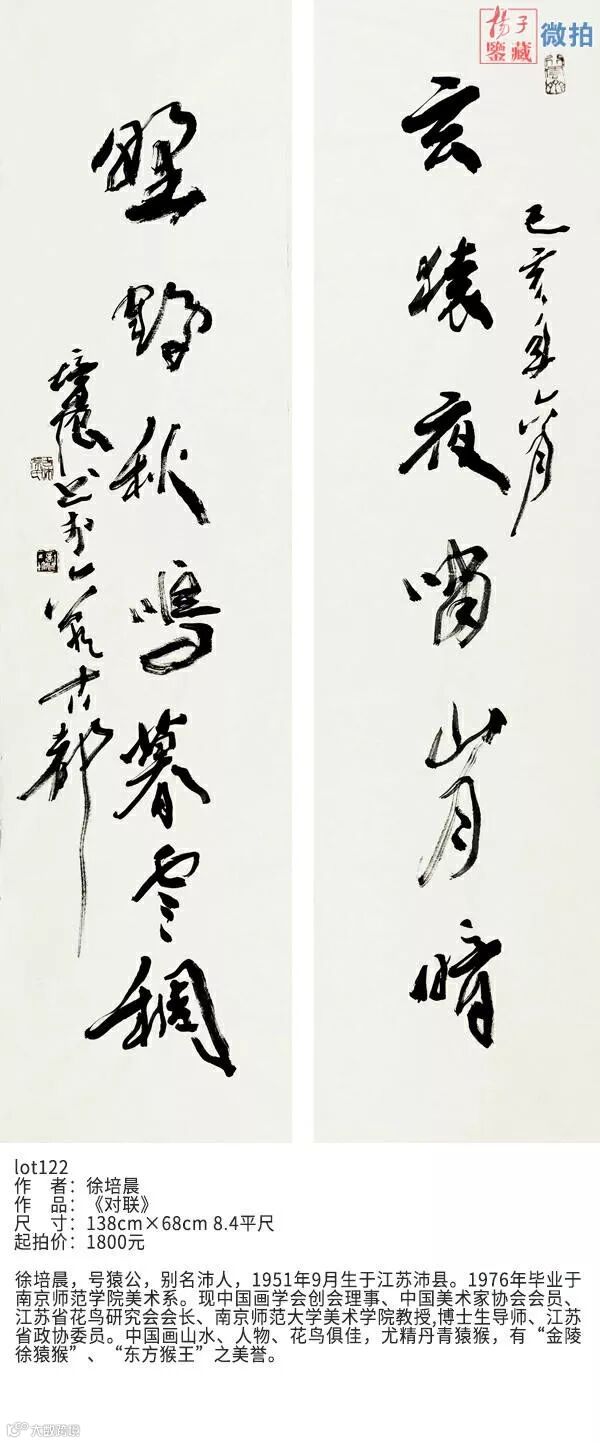 揚子
鑒藏
微拍
玄猿夜嘯山月暗
己亥年六月
野鶴秋鳴暮雲稠
培晨書於六朝古都
lot122
作　者：徐培晨
作　品：《对联》
尺　寸：138cm×68cm 8.4平尺
起拍价：1800元
徐培晨，号猿公，别名沛人，1951年9月生于江苏沛县。1976年毕业于
南京师范学院美术系。现中国画学会创会理事、中国美术家协会会员、
江苏省花鸟研究会会长、南京师范大学美术学院教授,博士生导师、江苏
省政协委员。中国画山水、人物、花鸟俱佳，尤精丹青猿猴，有“金陵
徐猿猴”、“东方猴王”之美誉。
大数跨境